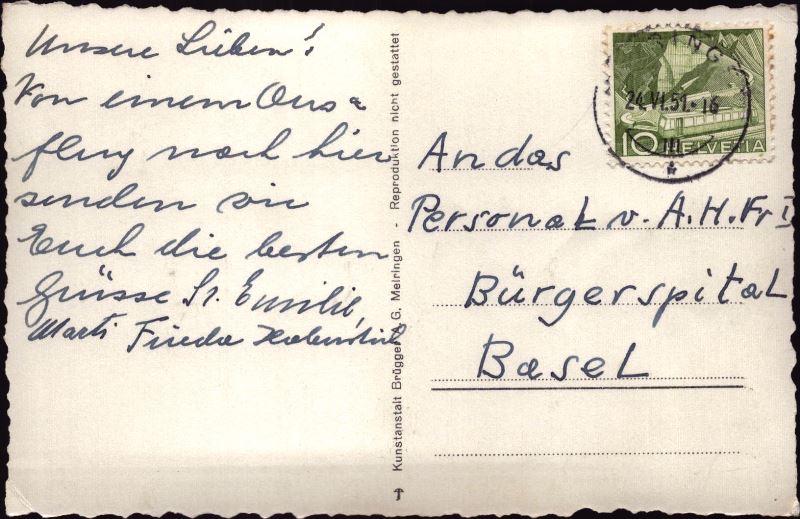 Unsere Lieben!
Von einem Aus=
flug nach hier
senden wir
Euch die besten
Grüsse Sr. Emilie,
Marti Frieda
Kunstanstalt Brügger A.G. Meiringen - Reproduktion nicht gestattet
24.VI.51.-16
III
10 HELVETIA
An das
Personal v. A.H. Fr I
Bürgerspital
Basel